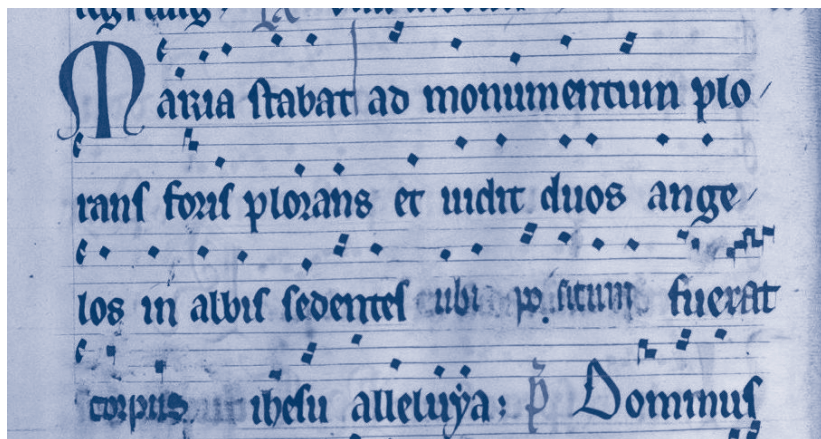 Maria stabat ad monumentum plo/
rans foris plorans et uidit duos ange/
los in albis sedentes ubi po situm fuerat
corpus ihesu alleluÿa: p̄ Dominus